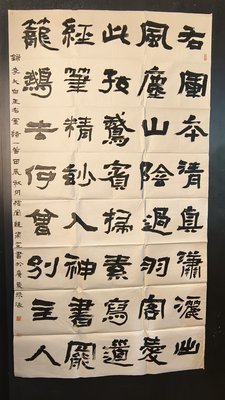 右軍本清真瀟灑出
風塵山陰過羽客愛
此好鵞賓掃素寫道
經筆精妙入神書罷
籠鵞去何曾別主人
錄李太白王右軍詩一首